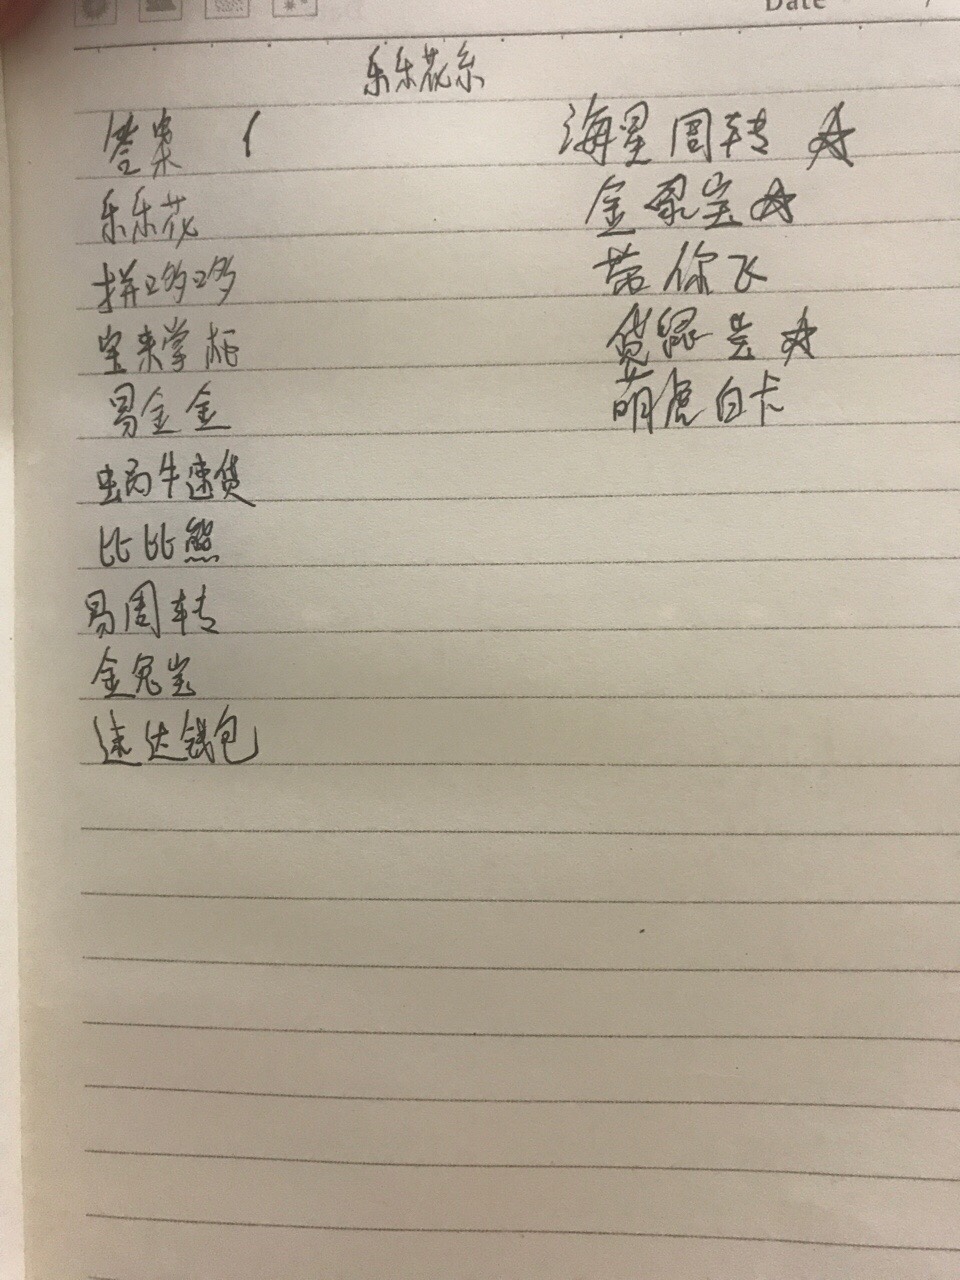 Date
乐乐花系
答案 1
乐乐花
拼哆哆
宝来掌柜
易金金
蜗牛速贷
比比熊
易周转
金兔宝
速达钱包
海星周转 ☆
金聚宝 ☆
带你飞
☆
萌虎白卡